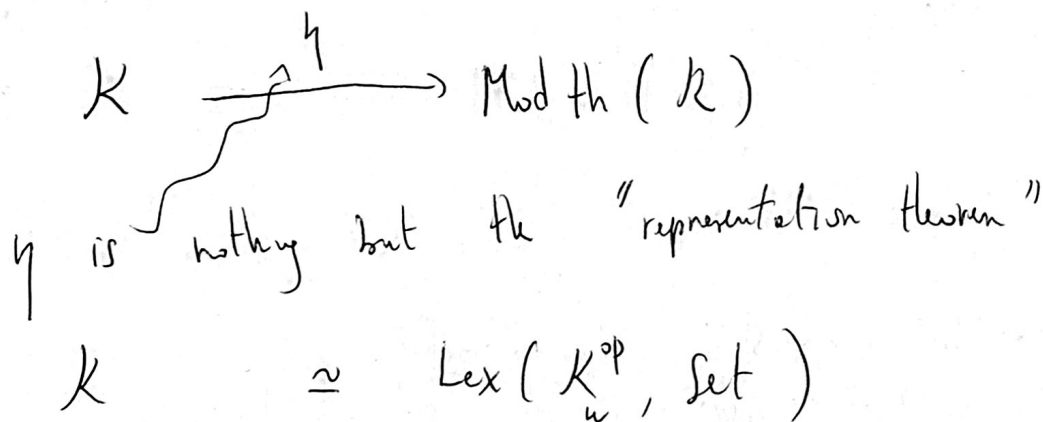 η
K → Mod th (K)
η is nothing but the "representation theorem"
K ≃ Lex(K_ω^op, Set)